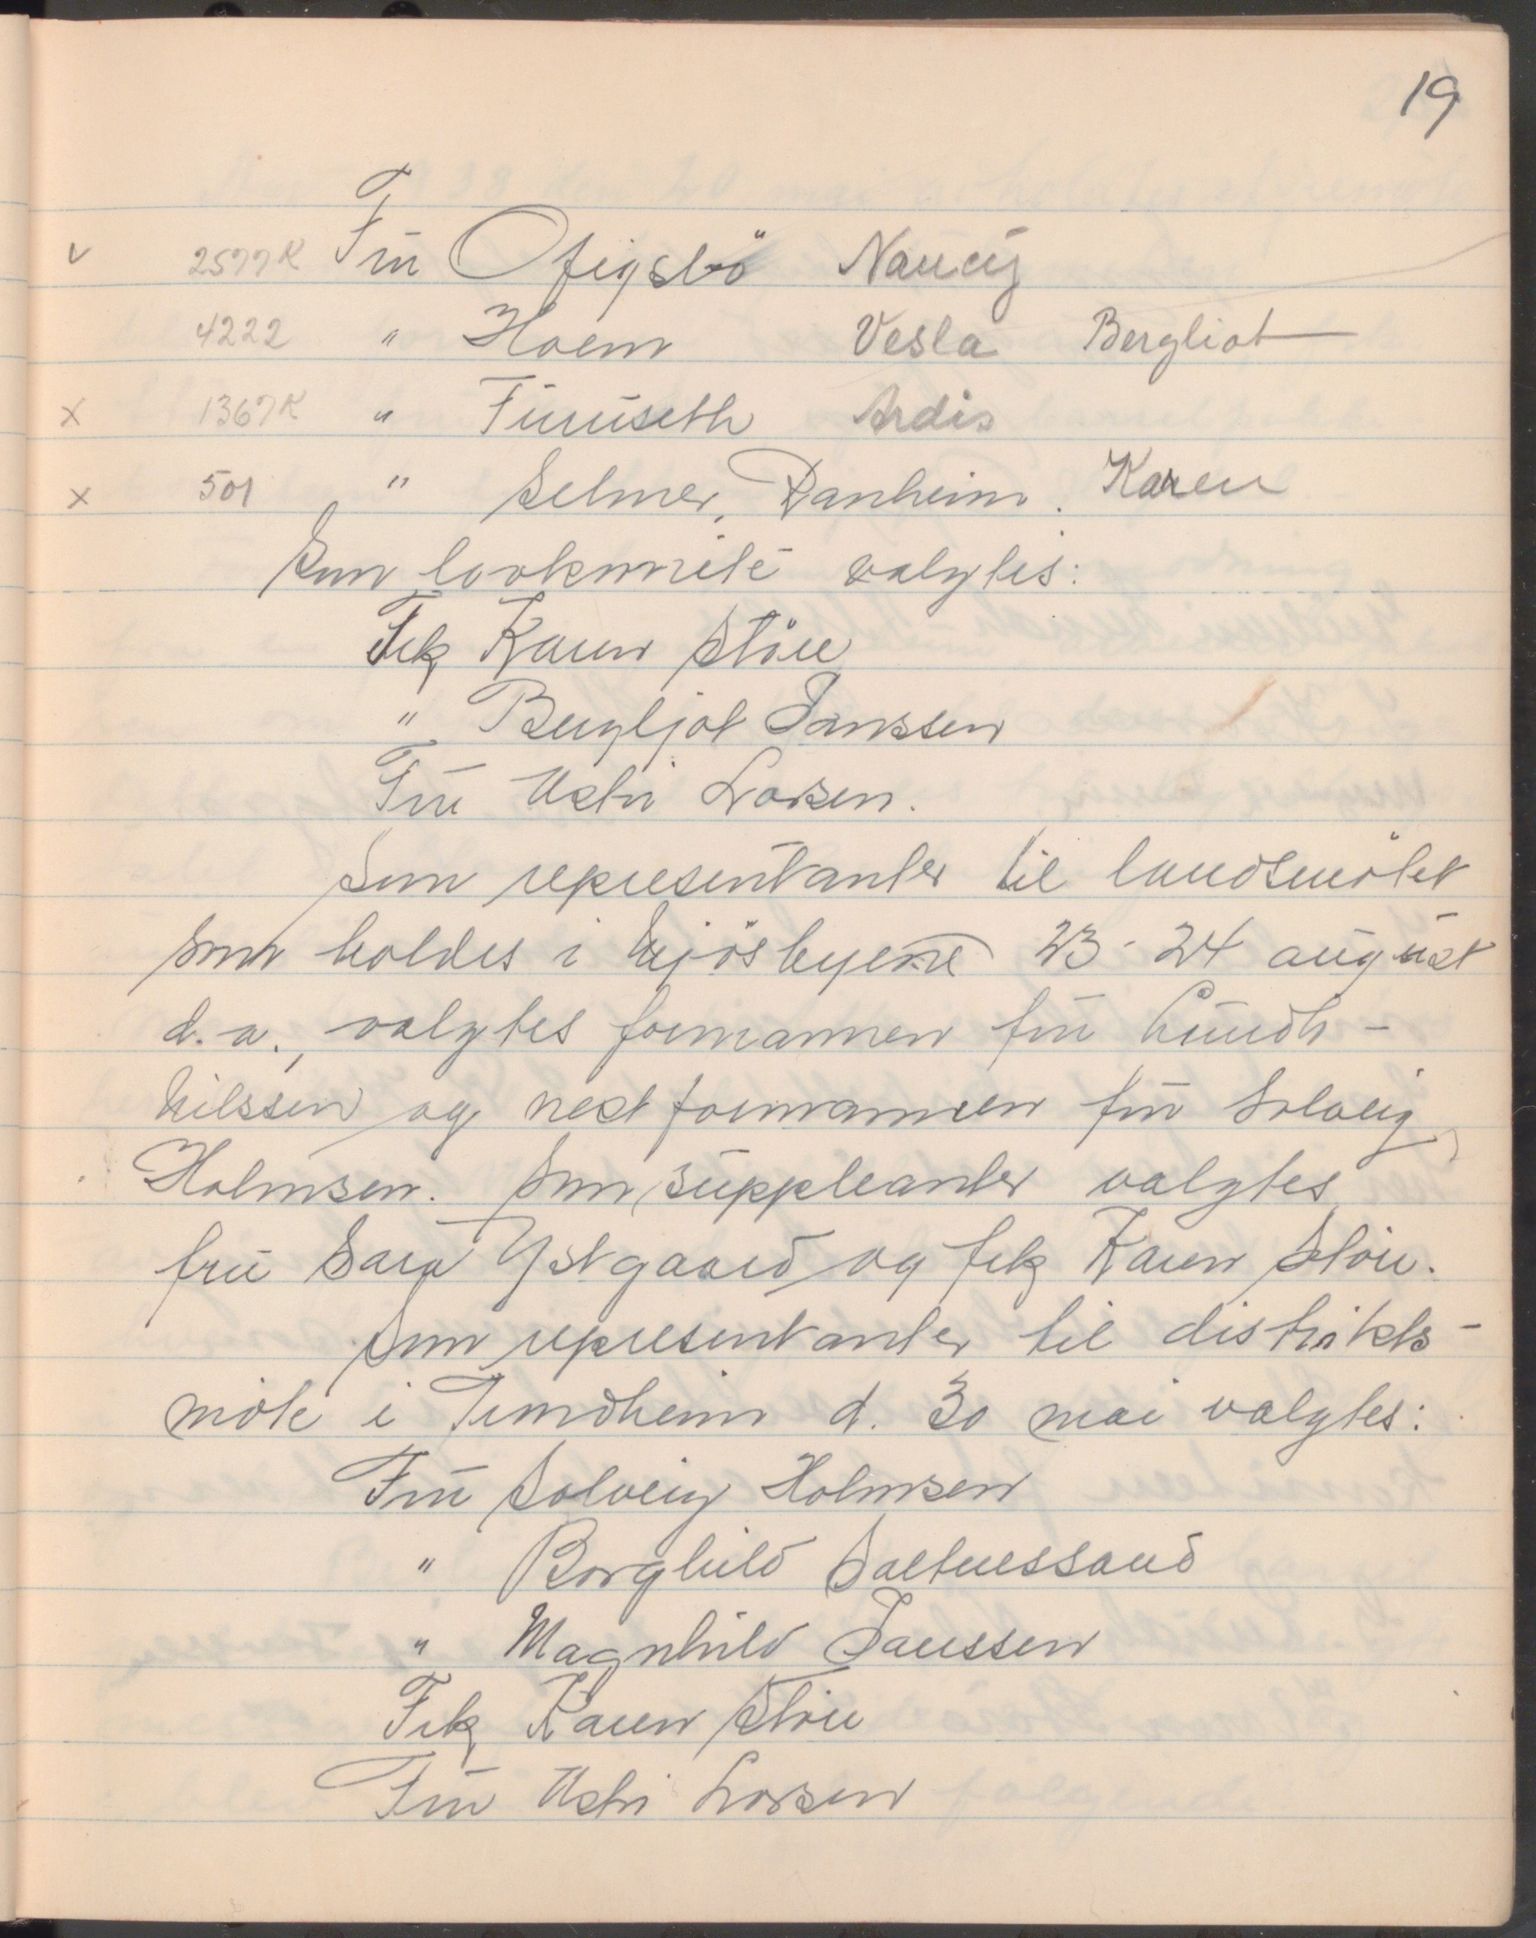 19
v 2577K Frü Ofigsbö Nancy
4222 " Hoem Vesla Bergliot
x 1367K " Furuseth Ardis
x 501 " Selmer, Ranheim. Karen
Som lovkomité valgtes:
Frk Karen Störe
" Bergljot Janssen
Frü Astri Larsen.
Som representanter til landsmötet
som holdes i Mjösbyene 23-24 august
d.a., valgtes formannen frü Lundh-
Nilssen og nestformannen frü Solveig
Holmsen. Som suppleanter valgtes
frü Sara Ystgaard og frk Karen Störe.
Som representanter til distrikts-
möte i Trondheim d. 30 mai valgtes:
Frü Solveig Holmsen
" Borghild Saltnessand
" Magnhild Janssen
Frk Karen Störe
Frü Astri Larsen